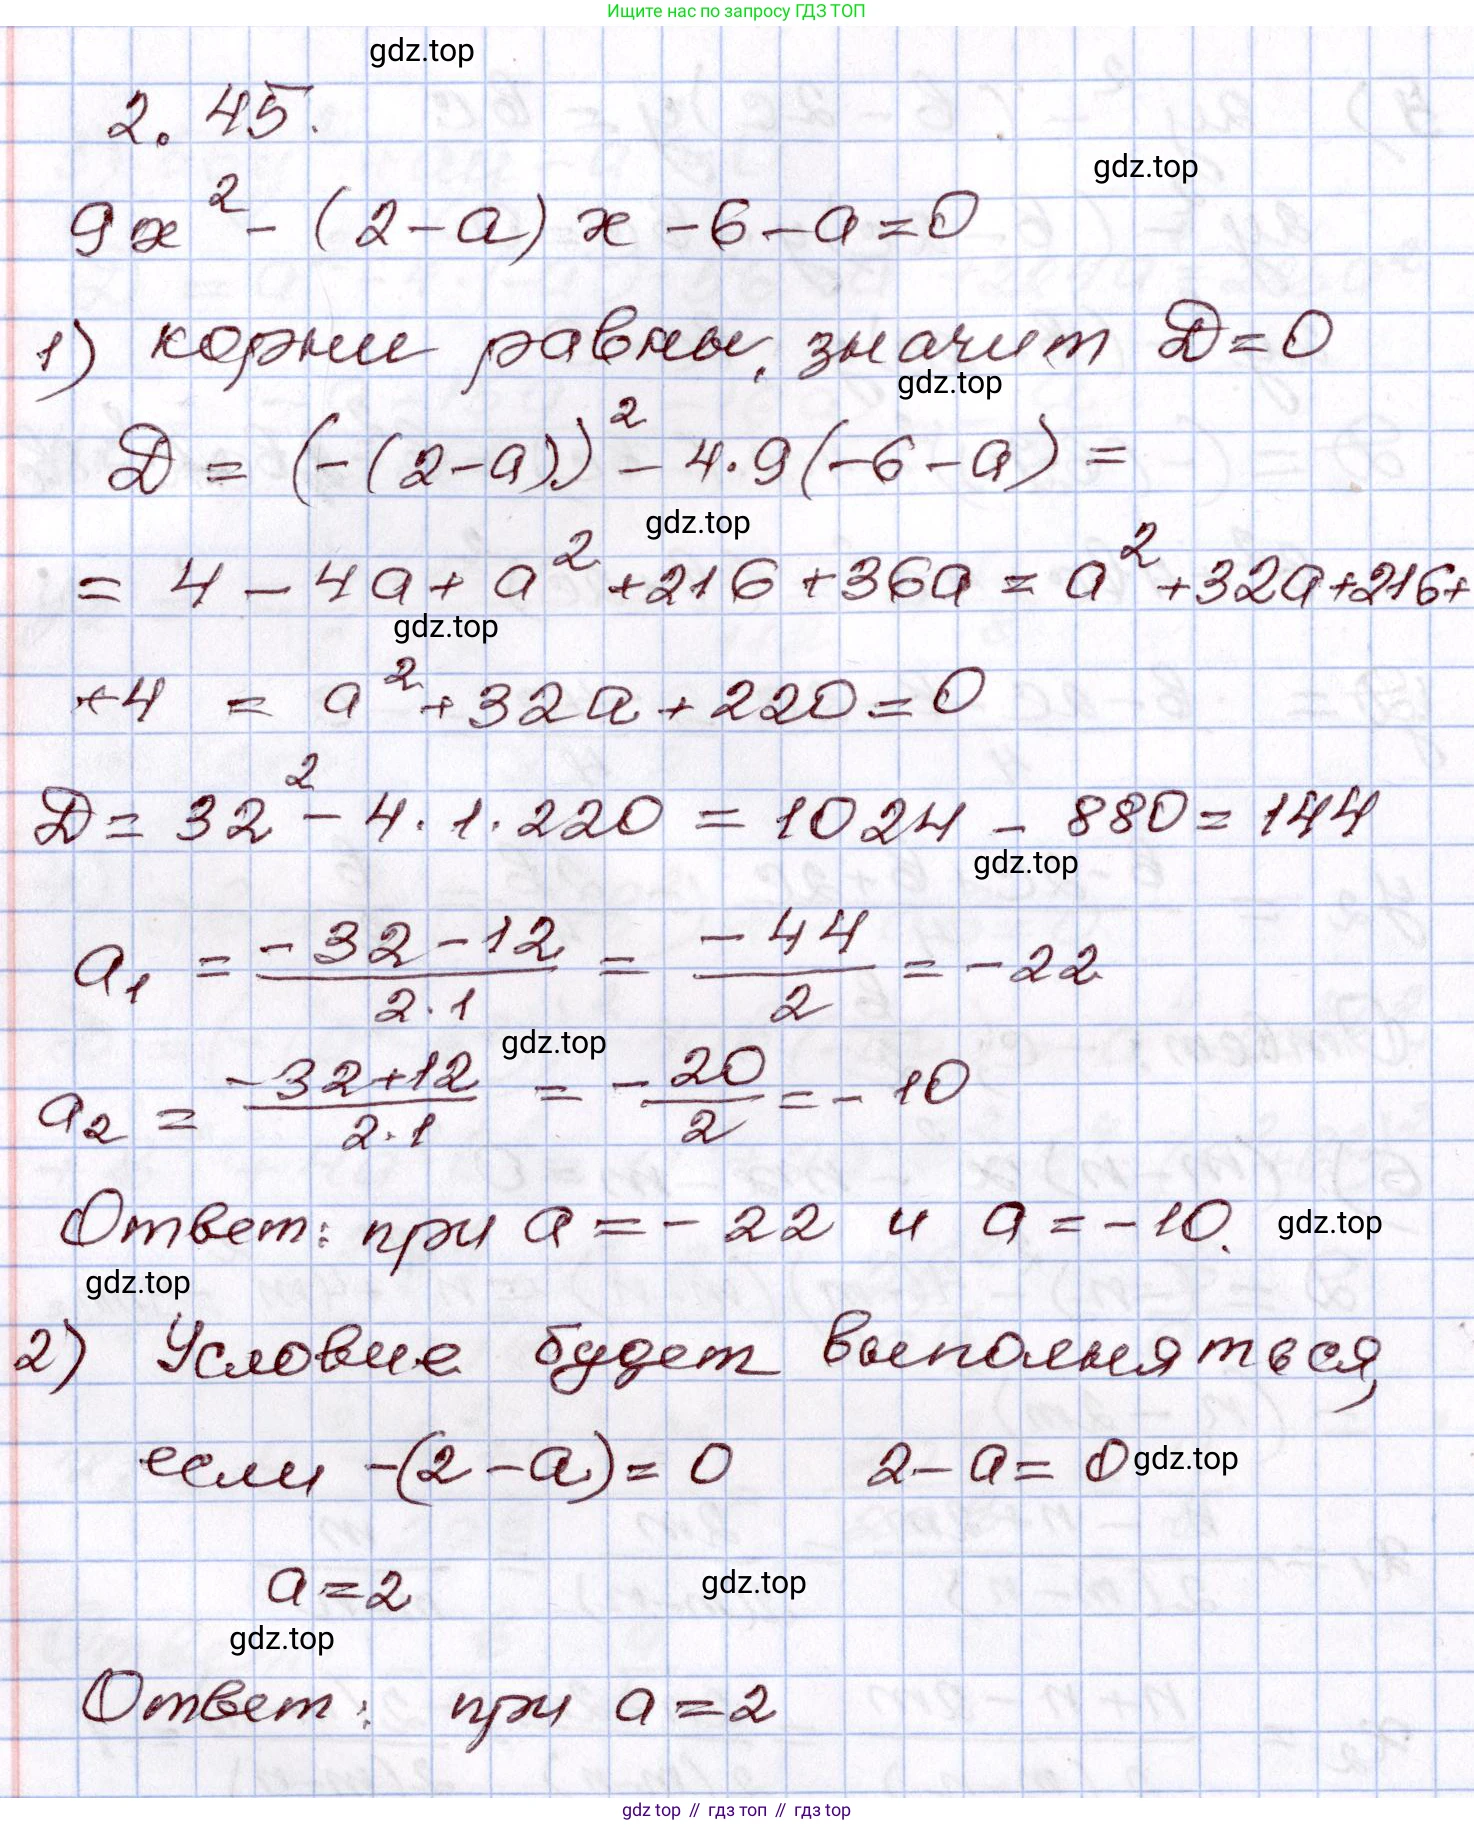 Ищите нас по запросу ГДЗ ТОП
gdz.top
2.45.
gdz.top
9x² - (2-a)x - 6 - a = 0
1) корни равны, значит D=0
gdz.top
D = (-(2-a))² - 4·9(-6-a) =
gdz.top
= 4 - 4a + a² + 216 + 36a = a² + 32a + 216 +
gdz.top
+4 = a² + 32a + 220 = 0
D = 32² - 4·1·220 = 1024 - 880 = 144
gdz.top
a₁ = (-32-12)/(2·1) = (-44)/2 = -22
gdz.top
a₂ = (-32+12)/(2·1) = -20/2 = -10
Ответ: при a = -22 и a = -10. gdz.top
gdz.top
2) Условие будет выполняться,
если -(2-a) = 0 2-a = 0 gdz.top
a = 2 gdz.top
gdz.top
Ответ: при a = 2
gdz top // гдз топ // гдз top